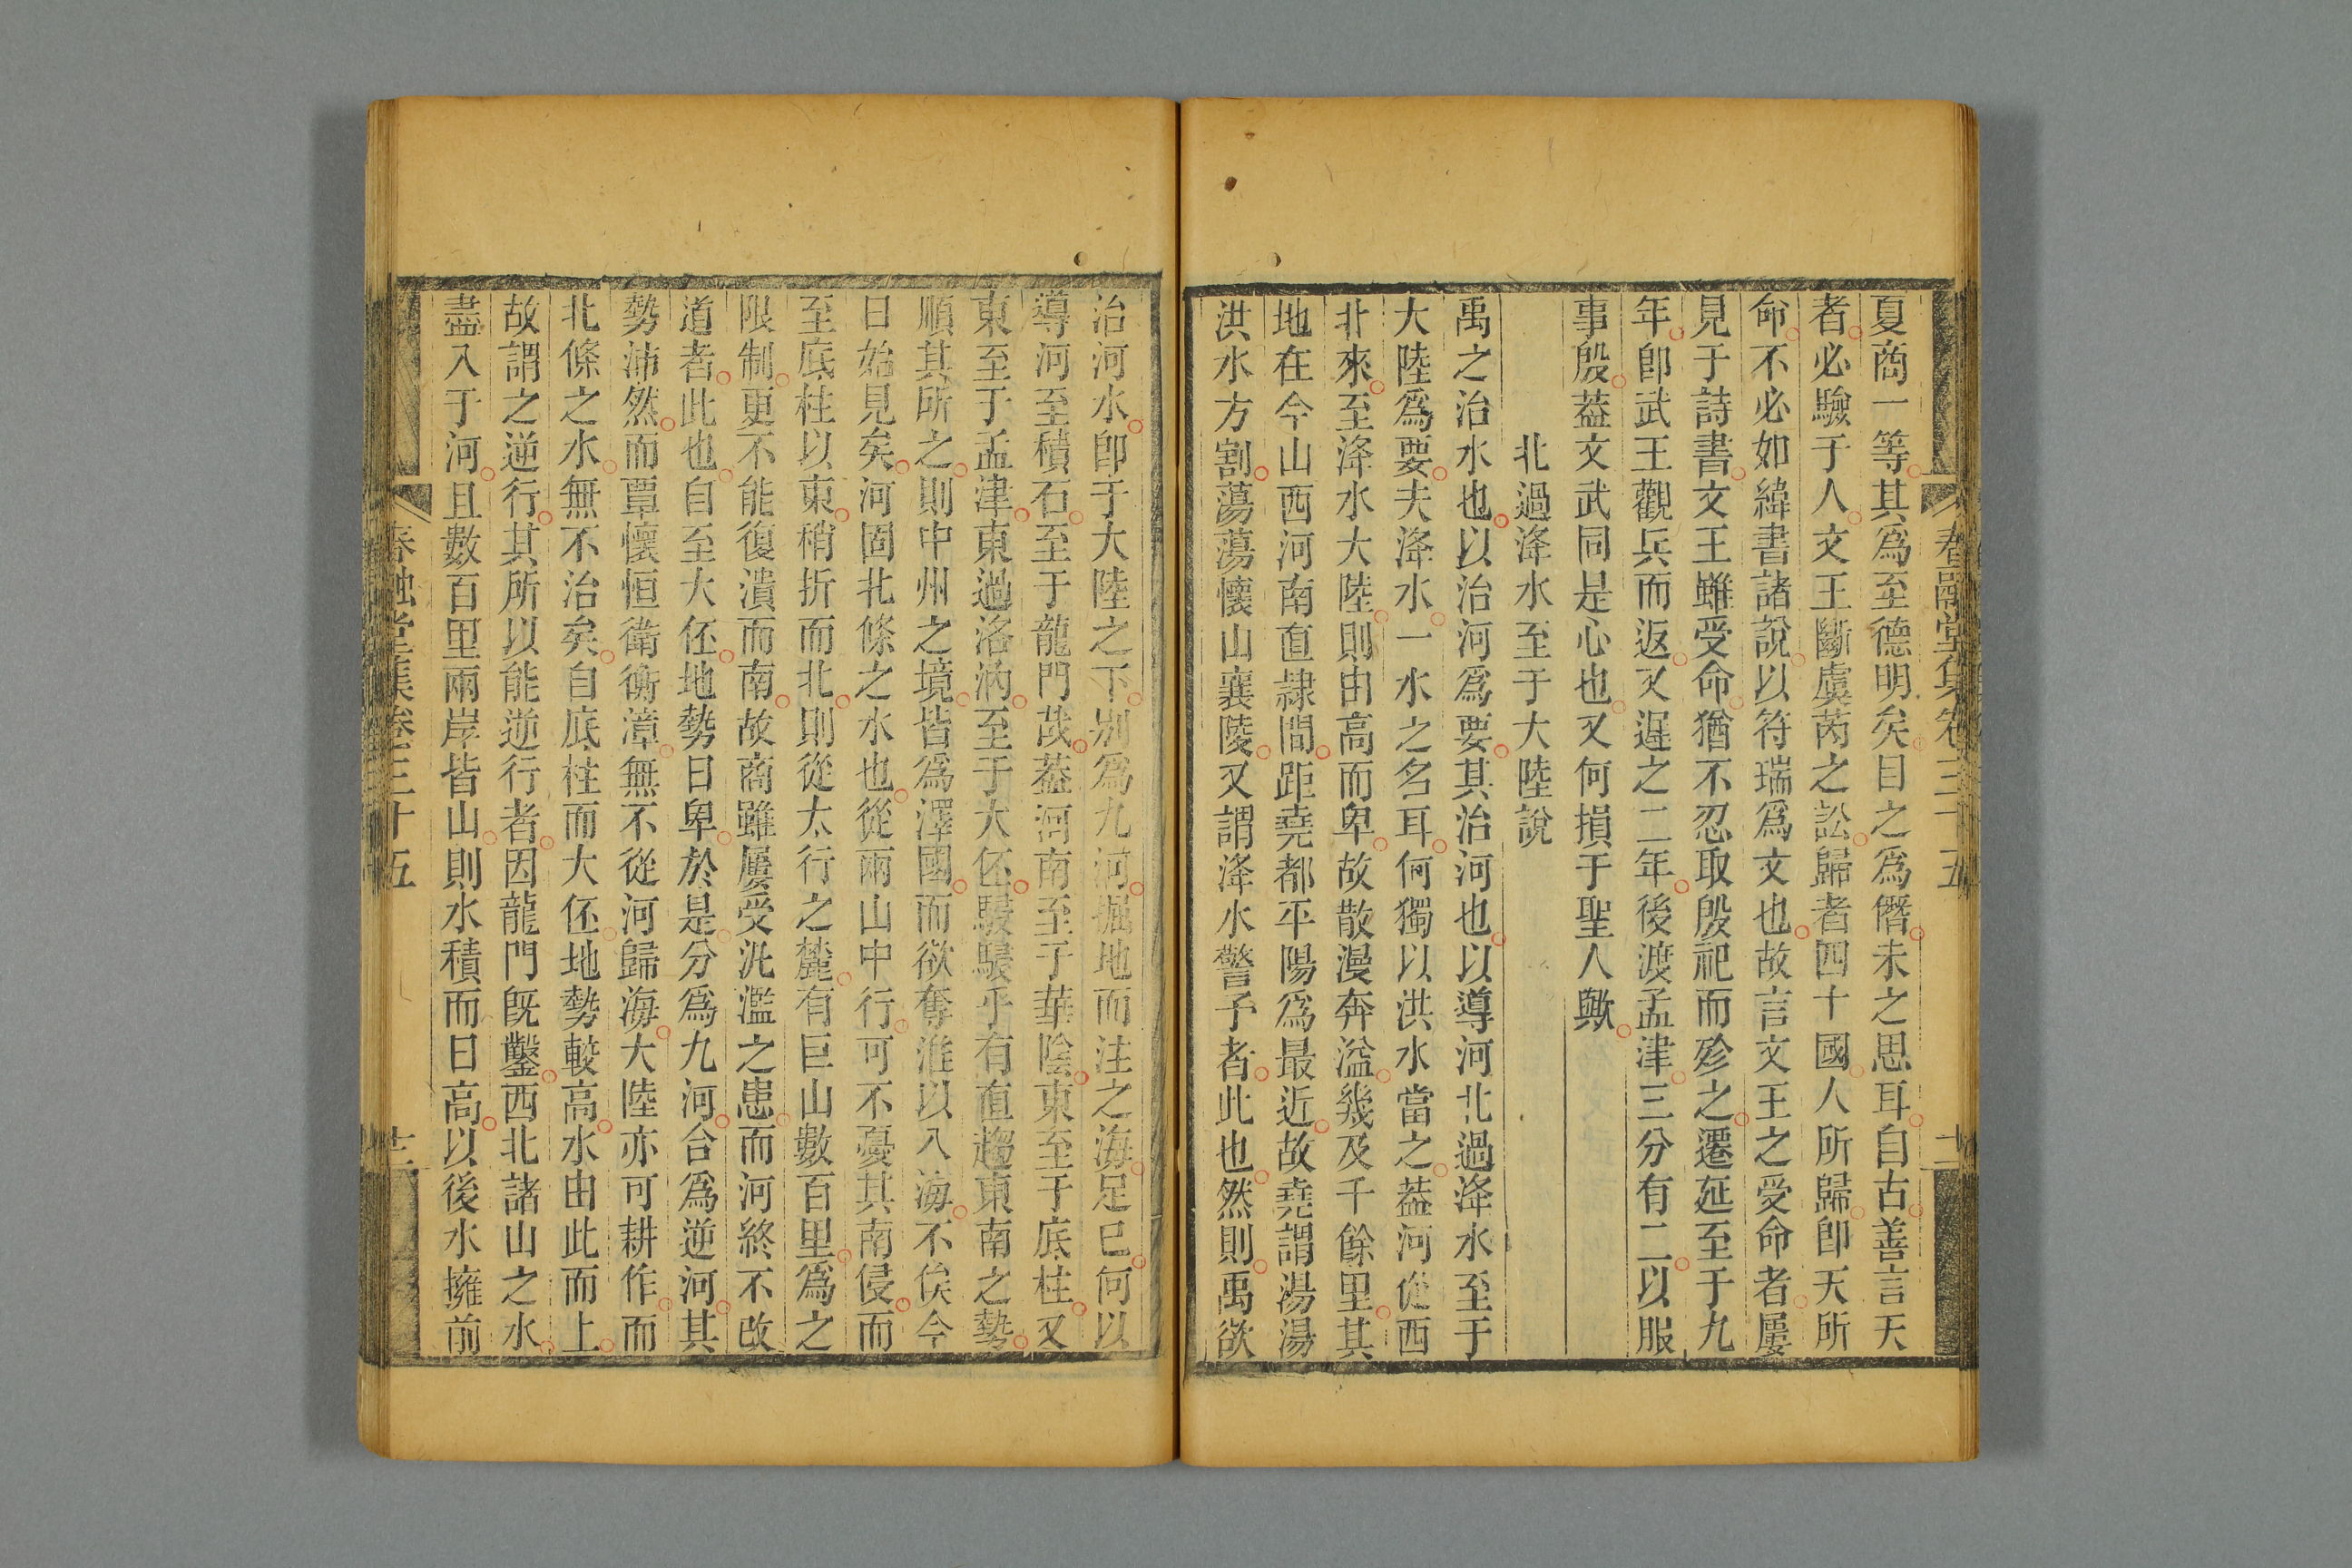 夏商一等其爲至德明矣目之爲僭未之思耳自古善言天
者必驗于人文王斷虞芮之訟歸者四十國人所歸卽天所
命不必如緯書諸說以符瑞爲文也故言文王之受命者屢
見于詩書文王雖受命猶不忍取殷祀而殄之遷延至于九
年卽武王觀兵而返又遲之二年後渡孟津三分有二以服
事殷葢文武同是心也又何損于聖人歟
北過洚水至于大陸說
禹之治水也以治河爲要其治河也以導河北過洚水至于
大陸爲要夫洚水一水之名耳何獨以洪水當之葢河從西
北來至洚水大陸則由高而卑故散漫奔溢幾及千餘里其
地在今山西河南直隷間距堯都平陽爲最近故堯謂湯湯
洪水方割蕩蕩懷山襄陵又謂洚水警予者此也然則禹欲
治河水卽于大陸之下別爲九河掘地而注之海足已何以
導河至積石至于龍門哉葢河南至于華陰東至于底柱又
東至于孟津東過洛汭至于大伾駸駸乎有直趨東南之勢
順其所之則中州之境皆爲澤國而欲奪淮以入海不俟今
日始見矣河固北條之水也從兩山中行可不憂其南侵而
至底柱以東稍折而北則從太行之麓有巨山數百里爲之
限制更不能復潰而南故商雖屢受汎濫之患而河終不改
道者此也自至大伾地勢日卑於是分爲九河合爲逆河其
勢沛然而覃懷恒衛衡漳無不從河歸海大陸亦可耕作而
北條之水無不治矣自底柱而大伾地勢較高水由此而上
故謂之逆行其所以能逆行者因龍門旣鑿西北諸山之水
盡入于河且數百里兩岸皆山則水積而日高以後水擁前
春融堂集卷三十五